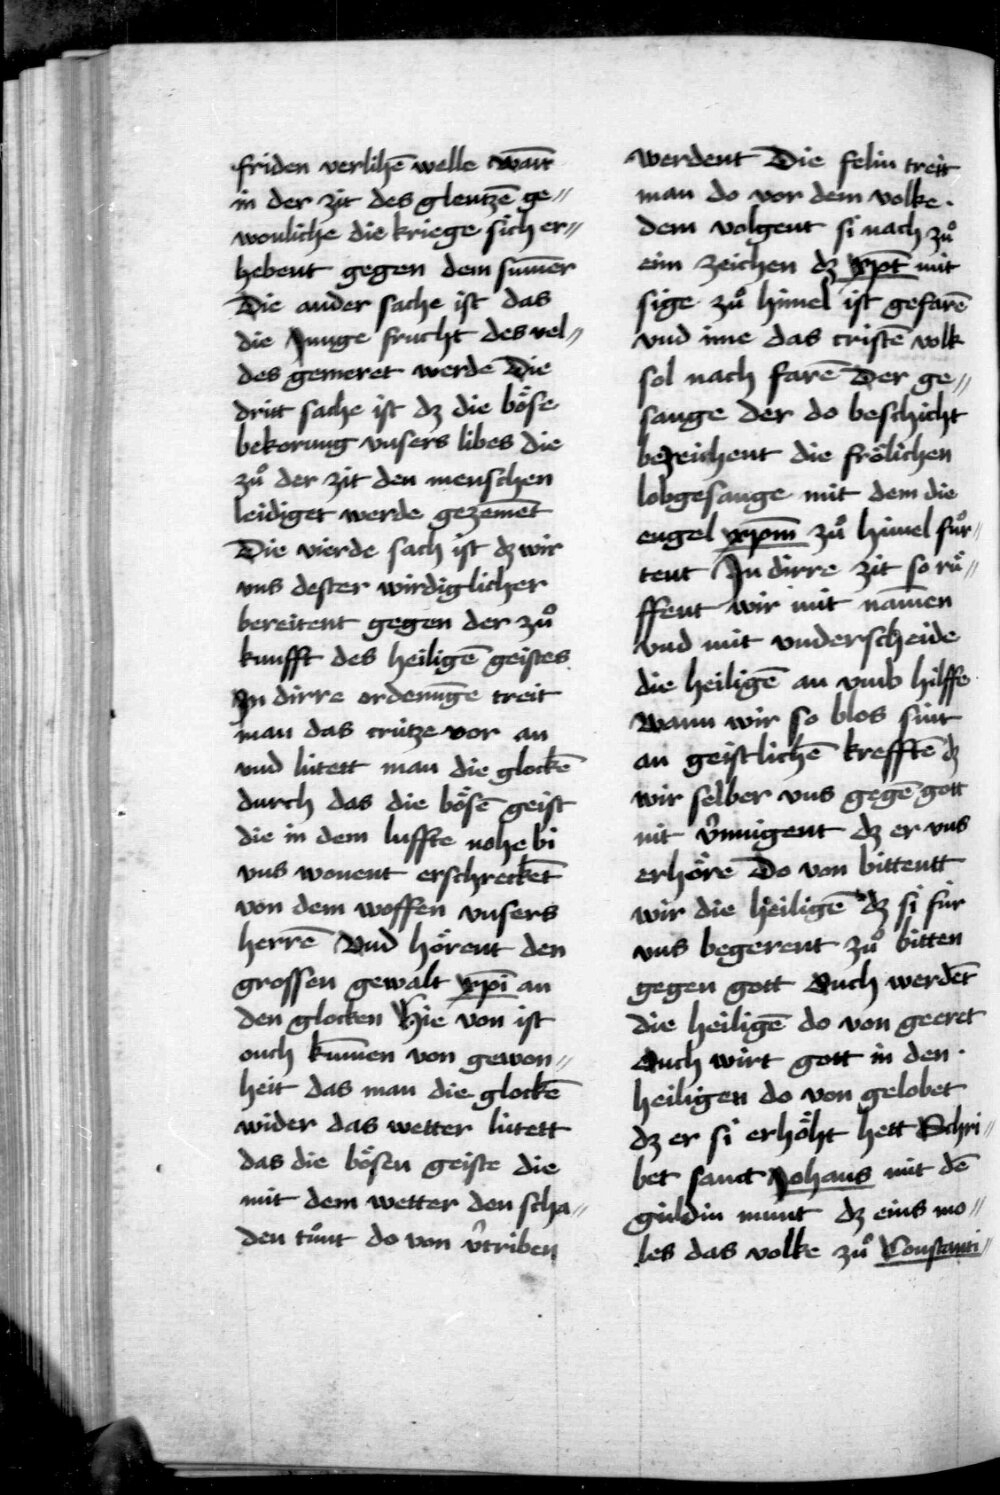 friden verlihē welle wan̄
in der zit des glentzē ge〃
wonliche die kriege sich er〃
hebent gegen dem sum̄er
Die ander sache ist das
die Junge frucht des vel〃
des gemeret werde Die
dritt sache ist dz die böse
bekorung vnsers libes die
zů der zit den menschen
leidiget werde gezemēt
Die vierde sach ist dz wir
vns dester wirdiglicher
bereitent gegen der zů
kunfft des heiligē geistes
In dirre ordenūge treit
man das crütze vor an
vnd lütett man die glockē
durch das die bösē geist
die in dem luffte nohe bi
vns wonent erschreckēt
von dem woffen vnsers
herrē Vnd hörent den
grossen gewalt xp̄i an
den glocken Hie von ist
ouch kum̄en von gewon〃
heit das man die glockē
wider das wetter lütett
das die bösen geiste die
mit dem wetter den scha〃
den tůnt do von v̂triben
werdent Die felin treit
man do vor dem volke.
dem volgent si nach zů
eim zeichen dz xp̄t mit
sige zů himel ist gefarē
vnd ime das cristē volk
sol nach farē Der ge〃
sange der do beschicht
bezeichent die frölichen
lobgesange mit dem die
engel xp̄m zů himel fůr〃
tent In dirre zit so rů〃
ffent wir mit nam̄en
vnd mit vnderscheide
die heiligē an vmb hilffe
Wann wir so blos sint
an geistlichē krefftē dz
wir selber vns gegē gott
nit v̂mugent dz er vns
erhöre Do von bittentt
wir die heiligē dz si für
vns begerent zů bitten
gegen gott Ouch werdēt
die heiligē do von geeret
Ouch wirt gott in den
heiligen do von gelobet
dz er si erhöht hett Schri〃
bet sanct Johans mit dē
guldin munt dz eins mo〃
les das volke zů Constanti〃